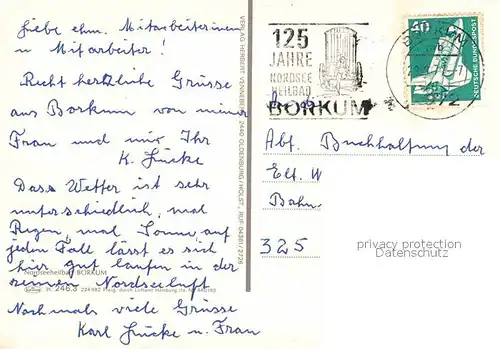 Liebe ehm. Mitarbeiterinnen
u Mitarbeiter!
Recht herzliche Grüsse
aus Borkum von meiner
Frau und mir Ihr
K. Jücke
Dass Wetter ist sehr
unterschiedlich, mal
Regen, mal Sonne auf
jeden Fall lässt es sich
hier gut laufen in der
reinen Nordseeluft
Nochmals viele Grüsse
Karl Jücke u. Frau
Nordseeheilbad BORKUM
VERLAG HERBERT VENNEBERG 2440 OLDENBURG/HOLST., RUF 04361/2726
125
JAHRE
NORDSEE
HEILBAD
BORKUM
40
DEUTSCHE BUNDESPOST
Abt. Buchhaltung der
Elt. W
Bahn.
325
privacy protection
Datenschutz